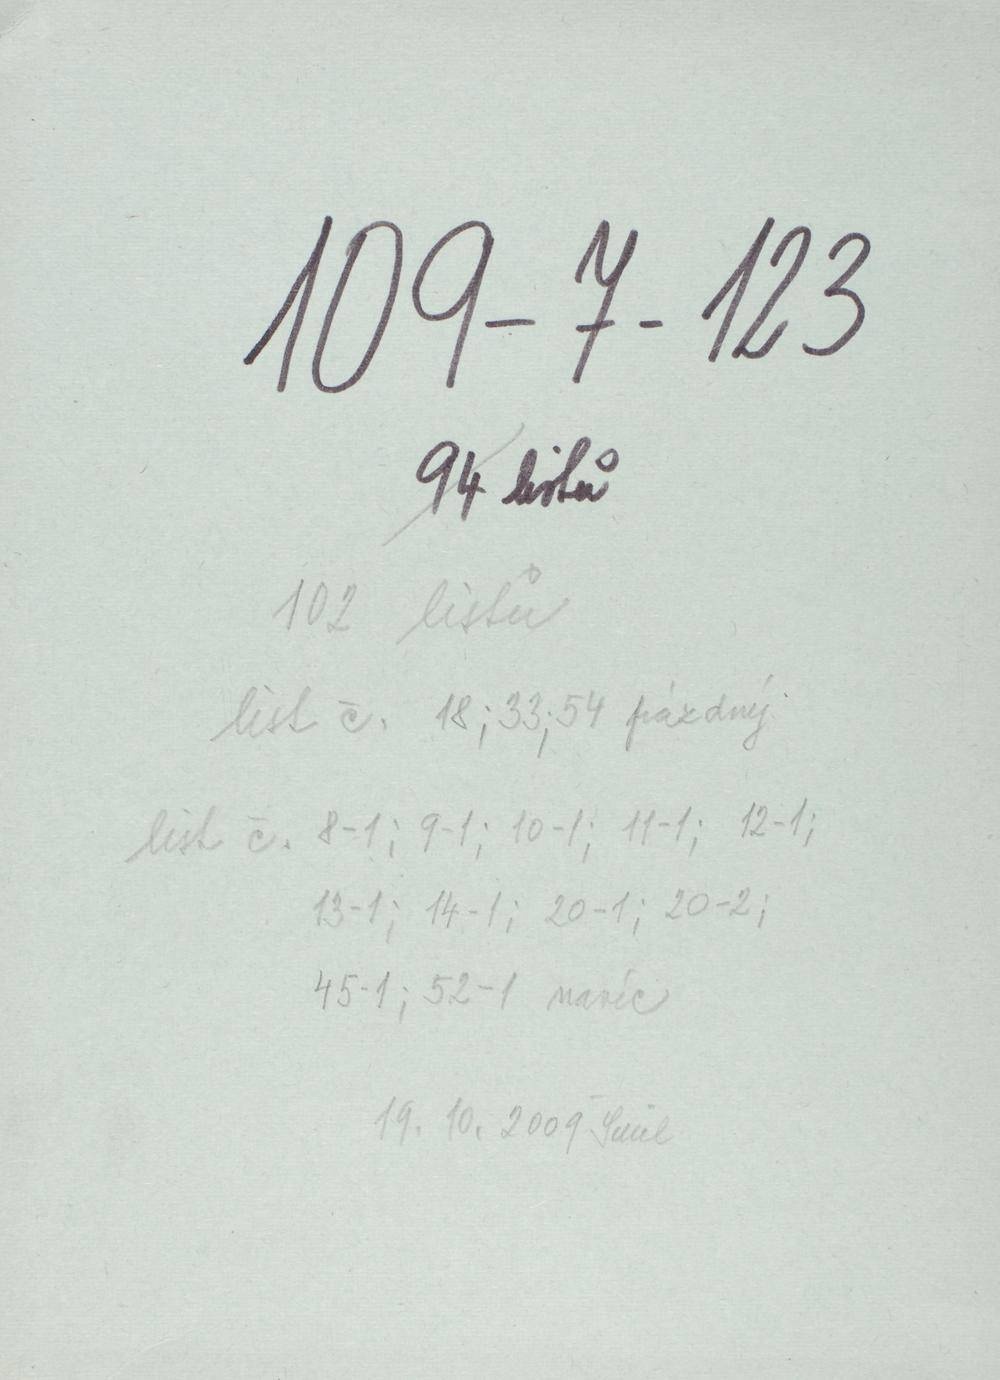 109-7-123
94 listů
102 listů
list č. 18; 33; 54 prázdný
list č. 8-1; 9-1; 10-1; 11-1; 12-1;
13-1; 14-1; 20-1; 20-2;
45-1; 52-1 navíc
19. 10. 2009